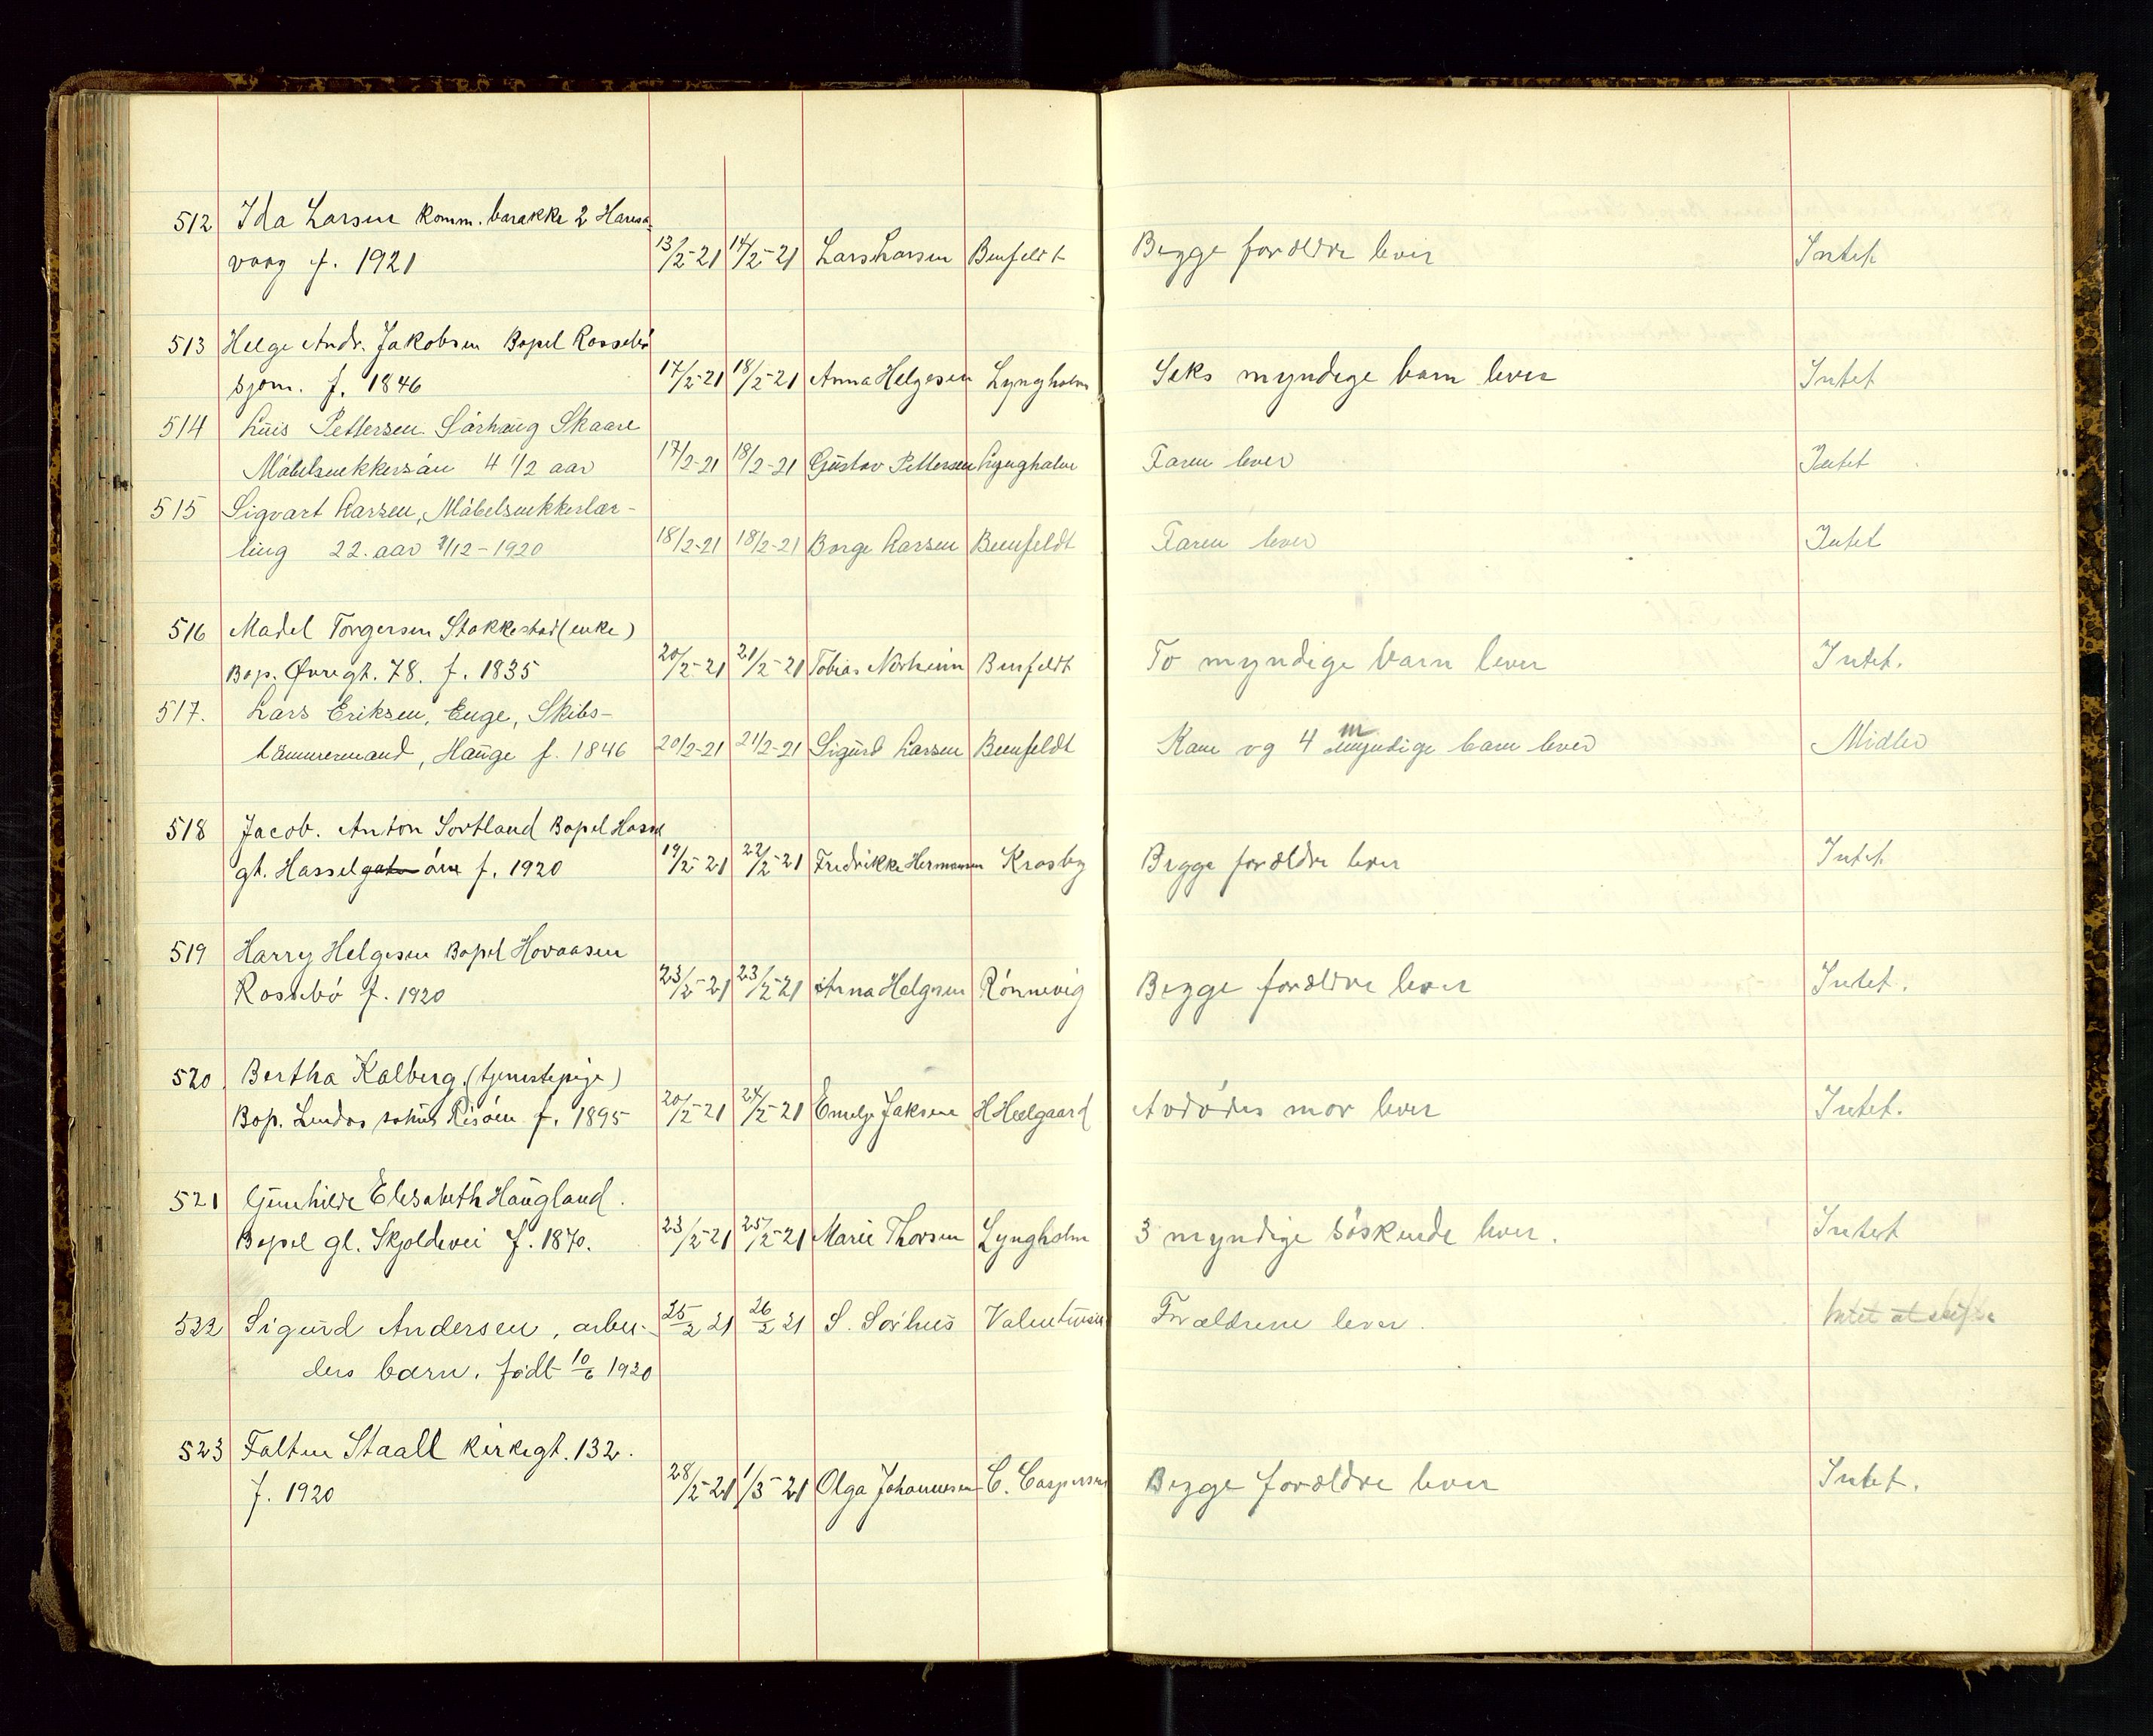 512 Ida Larsen komm. barakke 2 Haras-
vaag f. 1921 13/2-21 14/2-21 Lars Larsen Benfeldt Begge forældre lever Intet
513 Helge Andr. Jakobsen Bopel Rossebø
sjom. f. 1846 17/2-21 18/2-21 Anna Helgesen Lyngholm Seks myndige barn lever Intet
514 Pettersen Sørhaug Skaare
Møbelsnekkersøn 4 1/2 aar 17/2-21 18/2-21 Gustav Pettersen Lyngholm Faren lever Intet
515 Sigvart Larsen, Møbelsnekkerlær-
ling 22. aar /12-1920 18/2-21 18/2-21 Borge Larsen Benfeldt Faren lever Intet
516 Madel Torgersen Stokkestad (enke)
Bop. Øvregt. 78. f. 1835 20/2-21 21/2-21 Tobias Norheim Benfeldt To myndige barn lever Intet.
517. Lars Eriksen, Enge, Skibs-
tømmermand, Hauge f. 1846 20/2-21 21/2-21 Sigurd Larsen Benfeldt Kone og 4 myndige barn lever Midler
518 Jacob. Anton Sortland Bopel Hassel
gt. Hasselgate øen f. 1920 19/2-21 22/2-21 Fredrikke Hermansen Krosby Begge forældre lever Intet
519 Harry Helgesen Bopel Hovaasen
Rossebø f. 1920 23/2-21 23/2-21 Anna Helgesen Rønnevig Begge forældre lever Intet.
520 Bertha Kalberg. (tjenestepige)
Bop. Risøen f. 1895 20/2-21 24/2-21 Jaksen H Helgaard Avdødes mor lever Intet.
521 Gunhilde Elisabeth Haugland.
Bopel gl. Skjoldevei f. 1870. 23/2-21 25/2-21 Marie Thorsen Lyngholm 3 myndige søskende lever. Intet
522 Sigurd Andersen, arbei- 25/2 21 26/2 21 S. Sørhus Valentinsen Forældrene lever. Intet at skifte
ders barn. født 10/6 1920
523 Falten Staall kirkegt. 132.
f. 1920 28/2-21 1/3-21 Olga Johannesen C. Caspersen Begge forældre lever Intet.